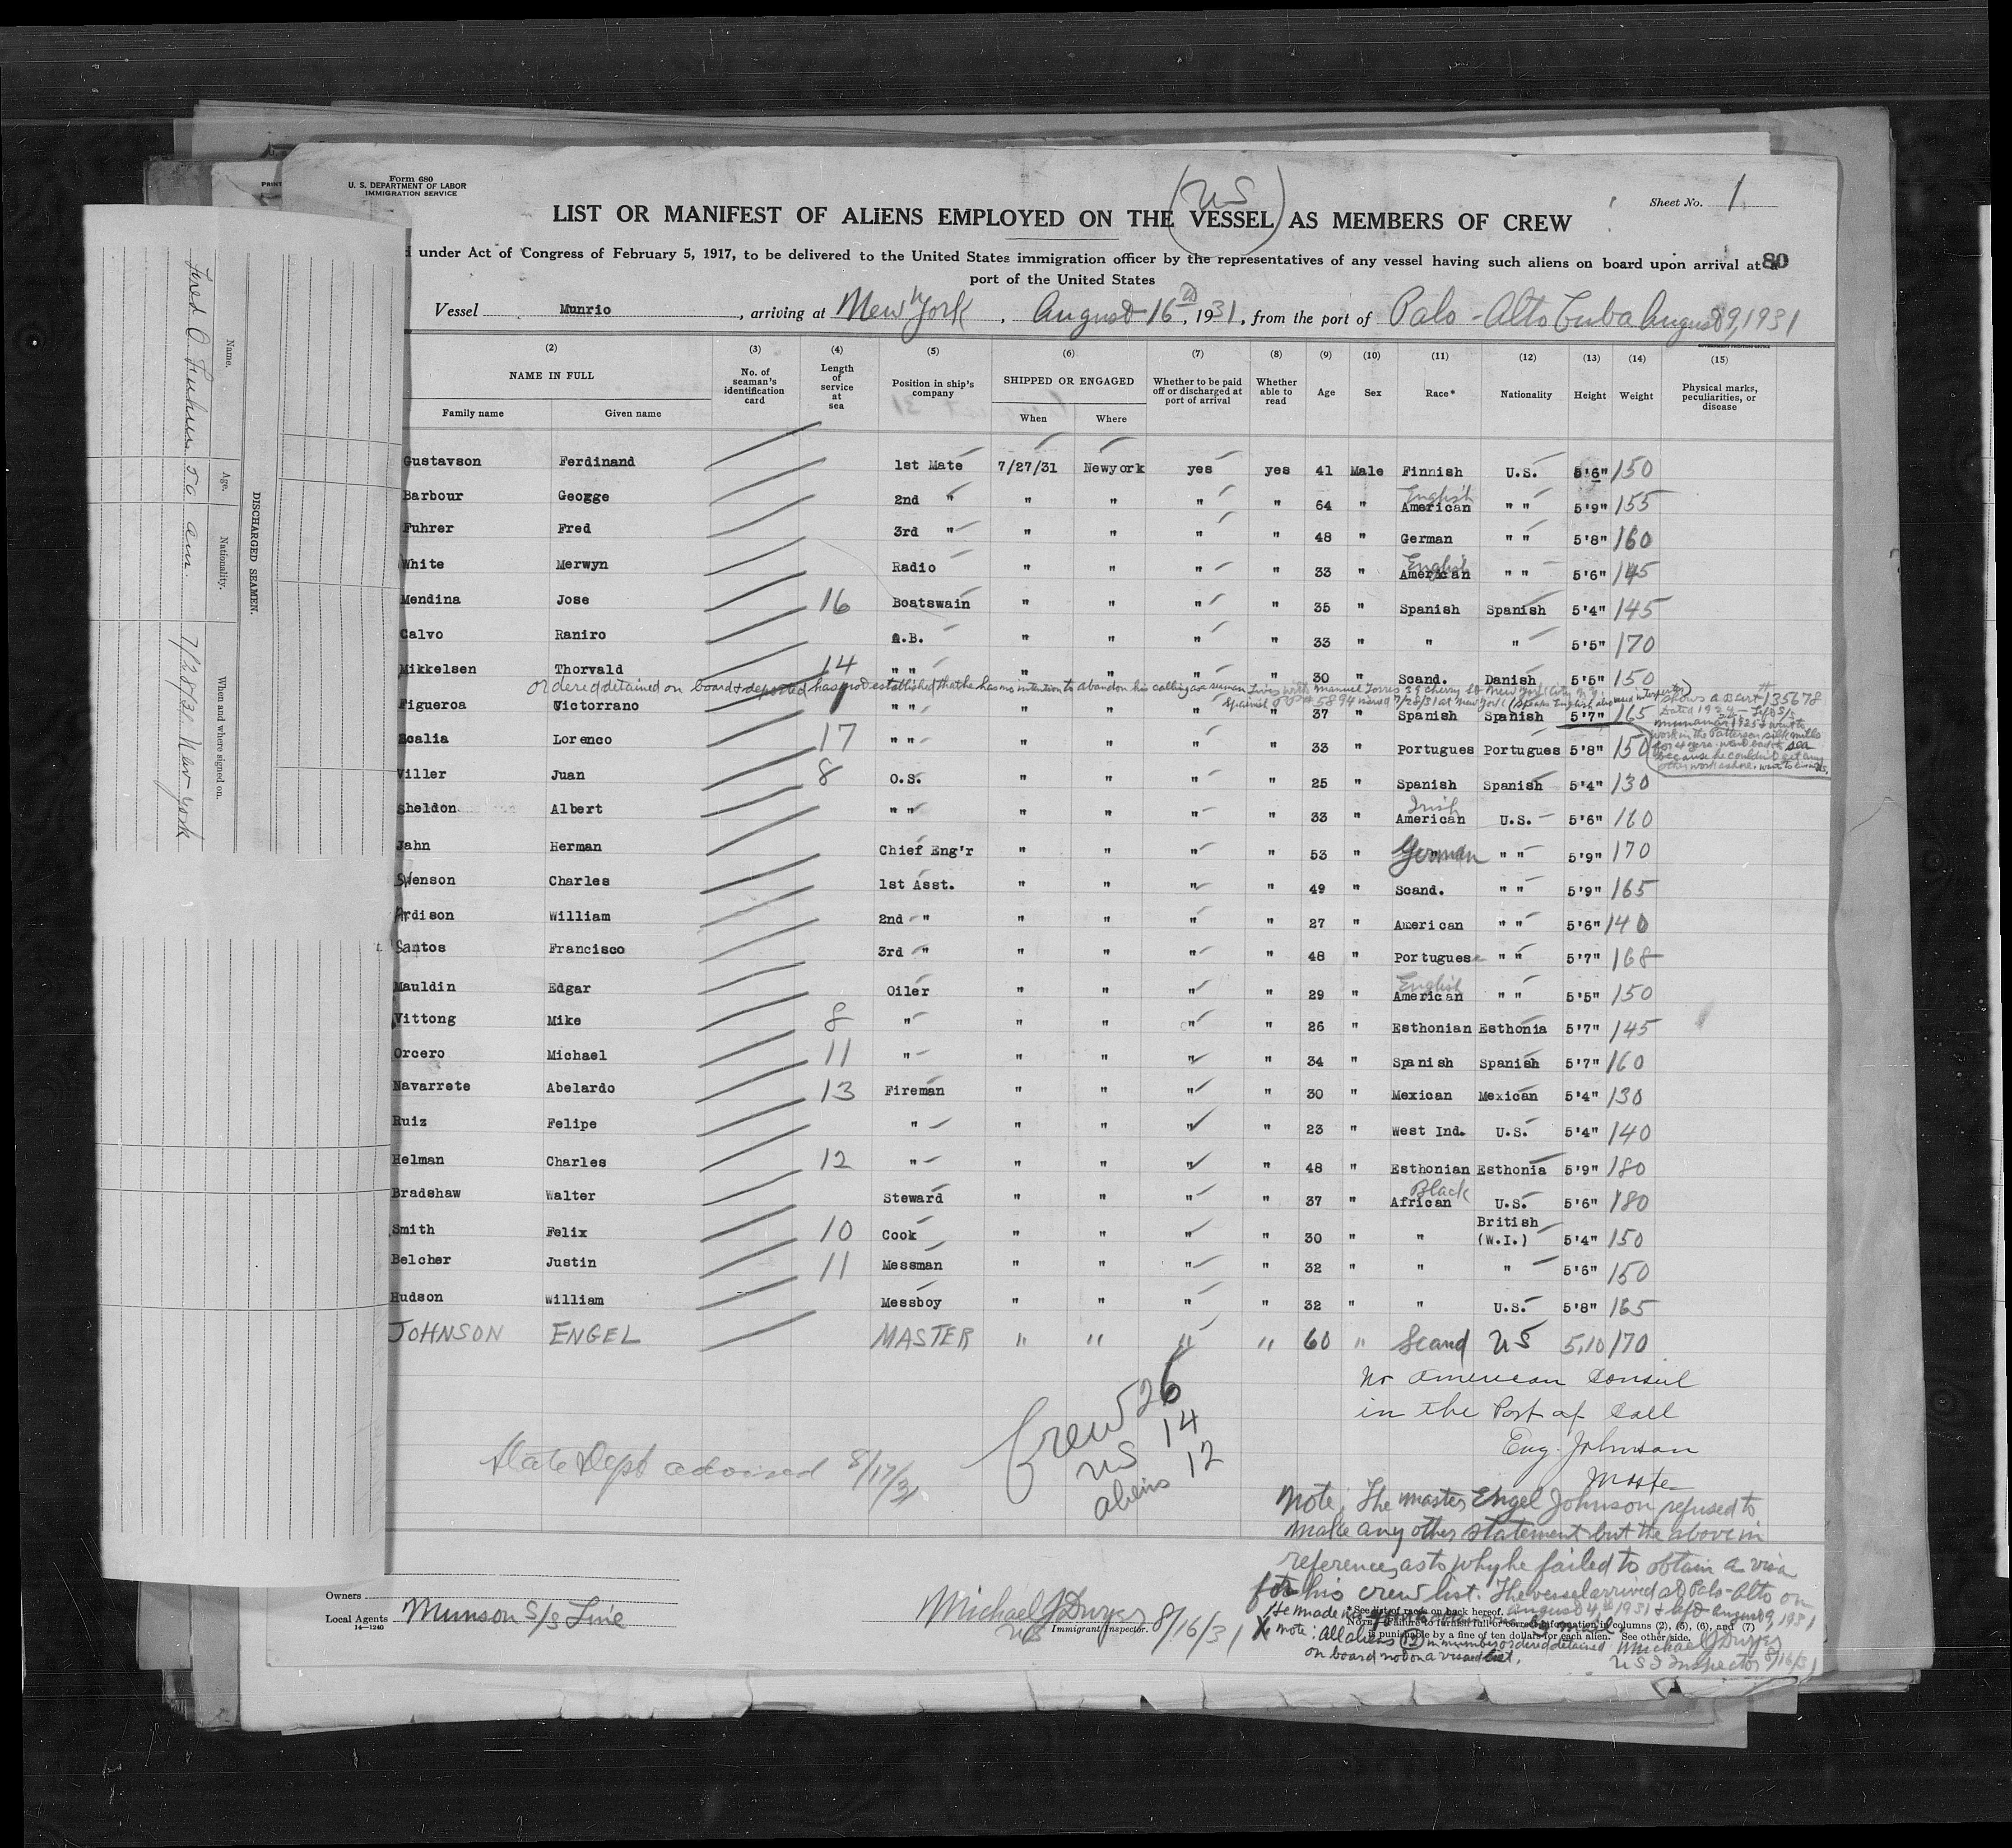 Form 680
U. S. DEPARTMENT OF LABOR
IMMIGRATION SERVICE
(US)
Sheet No. 1
LIST OR MANIFEST OF ALIENS EMPLOYED ON THE VESSEL AS MEMBERS OF CREW
under Act of Congress of February 5, 1917, to be delivered to the United States immigration officer by the representatives of any vessel having such aliens on board upon arrival at a
80
port of the United States
Vessel Munrio, arriving at New York, August 16th, 1931, from the port of Palo-Alto Cuba August 9, 1931
(2) (3) (4) (5) (6) (7) (8) (9) (10) (11) (12) (13) (14) (15)
NAME IN FULL
Family name Given name
No. of seaman's identification card
Length of service at sea
Position in ship's company
SHIPPED OR ENGAGED
When Where
Whether to be paid off or discharged at port of arrival
Whether able to read
Age Sex Race* Nationality Height Weight
Physical marks, peculiarities, or disease
Gustavson Ferdinand 1st Mate 7/27/31 Newyork yes yes 41 Male Finnish U.S. 5'6" 150
Barbour Geogge 2nd " " " " " 64 " English American " " 5'9" 155
Fuhrer Fred 3rd " " " " " 48 " German " " 5'8" 160
White Merwyn Radio " " " " 33 " English American " " 5'6" 145
Mendina Jose 16 Boatswain " " " " 35 " Spanish Spanish 5'4" 145
Calvo Raniro A.B. " " " " 33 " " " 5'5" 170
Mikkelsen Thorvald 14 " " " " " " 30 " Scand. Danish 5'5" 150
Ordered detained on board & deported has not established that he has no intention to abandon his calling as a seaman Lives with Manuel Torres 39 Cherry St New York City N.Y.
Spanish 5894 issued 7/28/31 at New York (Speaks English also used interpreter)
Figueroa Victorrano " " " " " " 37 " Spanish Spanish 5'7" 165
Shows a # 135678
Dated 1929
work in the Patterson silk mills
went back to sea
because he couldn't get any
other work ashore.
Scalia Lorenco 17 " " " " " " 33 " Portugues Portugues 5'8" 150
Viller Juan 8 O.S. " " " " 25 " Spanish Spanish 5'4" 130
Sheldon Albert " " " " " " 33 " Irish American U.S. 5'6" 160
Jahn Herman Chief Eng'r " " " " 53 " German " " 5'9" 170
Swenson Charles 1st Asst. " " " " 49 " Scand. " " 5'9" 165
Ardison William 2nd " " " " " 27 " American " " 5'6" 140
Santos Francisco 3rd " " " " " 48 " Portuguese " " 5'7" 168
Mauldin Edgar Oiler " " " " 29 " English American " " 5'5" 150
Vittong Mike 8 " " " " " 26 " Esthonian Esthonia 5'7" 145
Orcero Michael 11 " " " " " 34 " Spanish Spanish 5'7" 160
Navarrete Abelardo 13 Fireman " " " " 30 " Mexican Mexican 5'4" 130
Ruiz Felipe " " " " " 23 " West Ind. U.S. 5'4" 140
Helman Charles 12 " " " " " 48 " Esthonian Esthonia 5'9" 180
Bradshaw Walter Steward " " " " 37 " Black African U.S. 5'6" 180
Smith Felix 10 Cook " " " " 30 " " British (W.I.) 5'4" 150
Belcher Justin 11 Messman " " " " 32 " " " 5'6" 150
Hudson William Messboy " " " " 32 " " U.S. 5'8" 165
JOHNSON ENGEL MASTER " " " " 60 " Scand US 5,10 170
No American Consul
in the Port of Call
Eng. Johnson
Master
Crew 26
US 14
aliens 12
State Dept advised 8/17/31
Note; The master Engel Johnson refused to
make any other statement but the above in
reference as to why he failed to obtain a visa
for his crew list. The vessel arrived at Palo-Alto on
August 4th 1931 & left August 9, 1931
He made no
*See list of races on back hereof.
NOTE.—Failure to furnish full or correct information in columns (2), (5), (6), and (7)
is punishable by a fine of ten dollars for each alien. See other side.
X Note: All aliens (12) in number ordered detained
on board not on a visaed list.
Michael J Dwyer
US I Inspector 8/16/31
Owners
Local Agents Munson S/S Line
14—1240
Michael J Dwyer 8/16/31
US Immigrant Inspector.
DISCHARGED SEAMEN.
Name. Age. Nationality. When and where signed on.
Fred O. Fuhrer 50 am. 7/28/31 New York